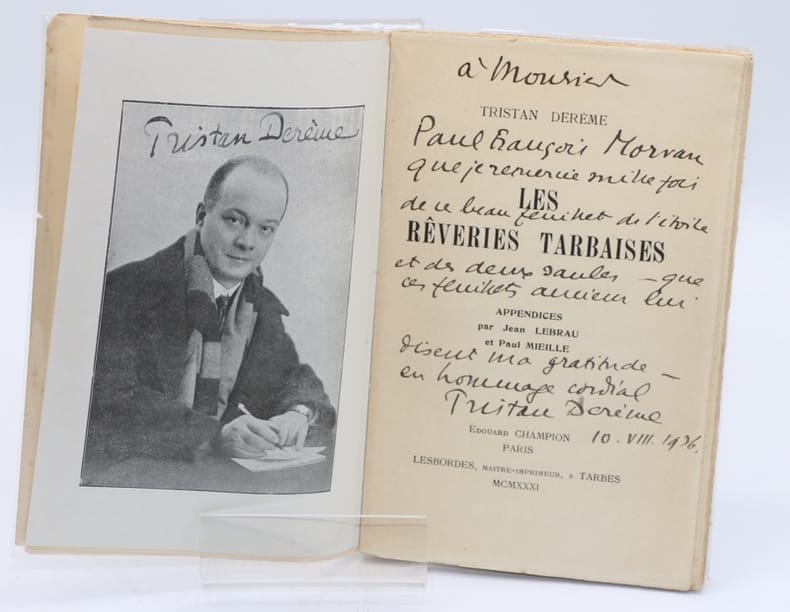 Tristan Derème
à Monsieur
TRISTAN DERÈME
Paul François Morvan
que je remercie mille fois
LES
de ce beau feuillet de l'étoile
RÊVERIES TARBAISES
et des deux saules – que
ces feuillets anciens lui
APPENDICES
par Jean LEBRAU
et Paul MIEILLE
disent ma gratitude –
en hommage cordial
Tristan Derème
EDOUARD CHAMPION
10. VIII. 1936.
PARIS
LESBORDES, MAITRE-IMPRIMEUR, A TARBES
MCMXXXI